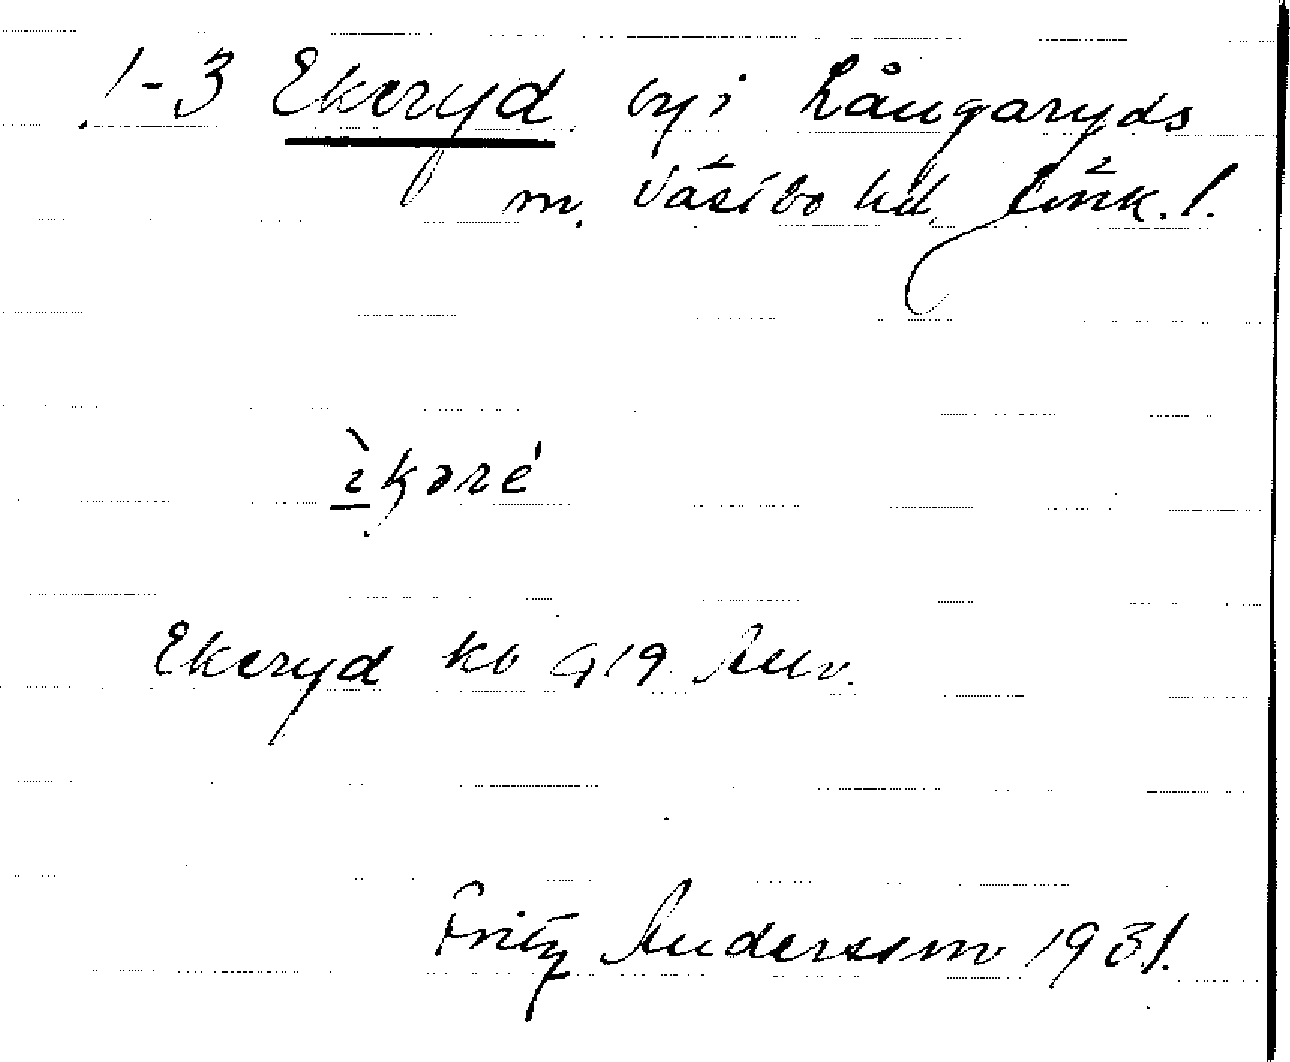 1-3 Ekeryd by i Långaryds
sn. Västbo hd, Jönk. l.
Ekeryd kb 919 Anv.
Fritz Andersson 1931.